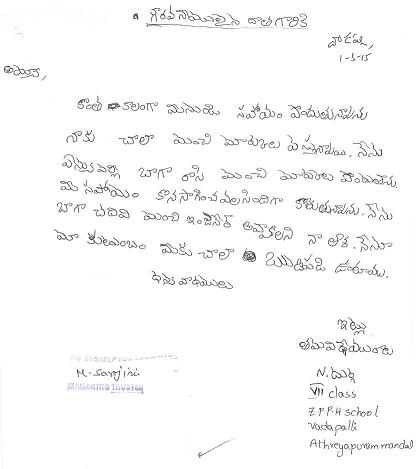 గౌరవనీయులైన దాత గారికి
వాడపల్లి,
1-3-15
అయ్యా,
కొంత కాలంగా మీనుండి సహాయం పొందుతున్నాను
నాకు చాలా మంచి మార్కులు వస్తున్నాయి. నేను
బాగా రాసి మంచి మార్కులు పొందుతాను.
మీ సహాయం కొనసాగించవలసిందిగా కోరుతున్నాను. నేను
బాగా చదివి మంచి ఇంజనీర్ అవ్వాలని నా ఆశ. నేనూ
మా కుటుంబం మీకు చాలా ఋణపడి ఉంటాము.
ధన్యవాదములు
ఇట్లు
తమ విధేయురాలు
N. దుర్గ
VII class
Z P P H school
Vadapalli
Athreyapuram mandal
M. Sarojini
MANAGING TRUSTEE